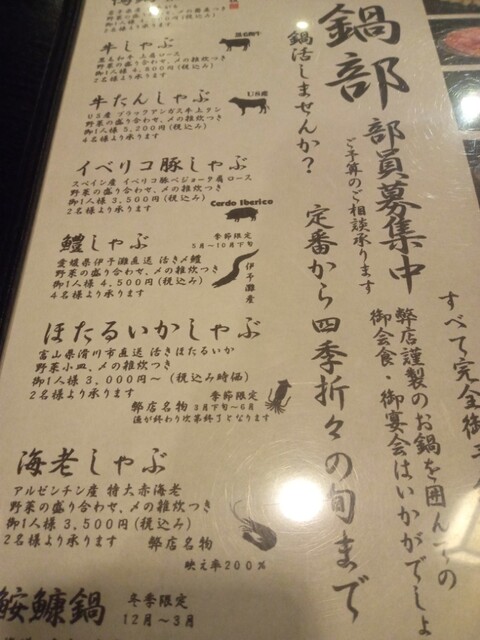 牛しゃぶ
黒毛和牛
黒毛和牛 上肩ロース
野菜の盛り合わせ、〆の雑炊つき
2名様より承ります
牛たんしゃぶ
US産
US産 ブラックアンガス牛上タン
野菜の盛り合わせ、〆の雑炊つき
御1人様 5,200円(税込み)
4名様より承ります
イベリコ豚しゃぶ
スペイン産 イベリコ豚ベジョータ肩ロース
野菜の盛り合わせ、〆の雑炊つき
御1人様 3,500円(税込み)
2名様より承ります
Cerdo Iberico
鱧しゃぶ
季節限定
5月~10月下旬
愛媛県伊予灘直送 活き〆鱧
野菜の盛り合わせ、〆の雑炊つき
御1人様 4,500円(税込み)
4名様より承ります
伊予灘産
ほたるいかしゃぶ
富山県滑川市直送 活きほたるいか
野菜小皿、〆の雑炊つき
御1人様 3,000円~(税込み時価)
2名様より承ります
季節限定
弊店名物 3月下旬~6月
漁が終わり次第終了となります
海老しゃぶ
アルゼンチン産 特大赤海老
野菜の盛り合わせ、〆の雑炊つき
御1人様 3,500円(税込み)
2名様より承ります 弊店名物
映え率200%
鮟鱇鍋
冬季限定
12月~3月
鍋部 部員募集中
鍋活しませんか?
ご予算のご相談承ります
定番から四季折々の旬まで
すべて完全御予
弊店謹製のお鍋を囲んでの
御会食・御宴会はいかがでしょ